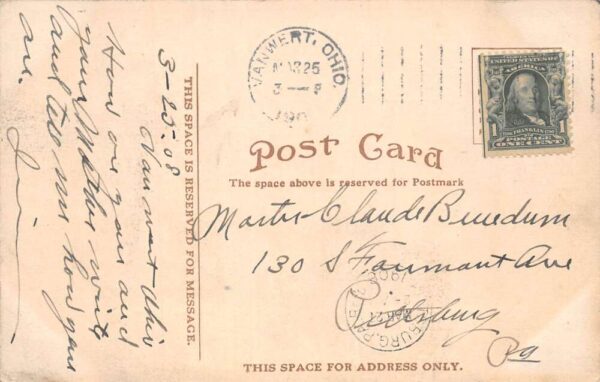 3-25-08
Van wert Ohio
How are you and
your Mother write
and tell me how you
are.
THIS SPACE IS RESERVED FOR MESSAGE.
VAN WERT, OHIO.
MAR 25
3 - P
190
UNITED STATES OF AMERICA
FRANKLIN
1 1
POSTAGE
ONE CENT
Post Card
The space above is reserved for Postmark
Master Claude Benedum
130 S Fairmont Ave
Pittsburg
Pa
THIS SPACE FOR ADDRESS ONLY.